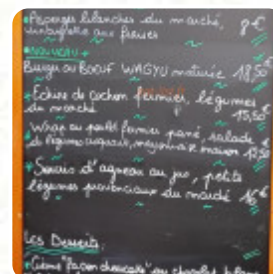 Asperges blanches du marché, 9€
vinaigrette aux
NOUVEAU
Burger au BOEUF WAGYU maturé 18,50€
Echine de cochon fermier, légumes
du marché 15,50
Wrap au poulet fermier pané, salade
de légumes croquant, mayonnaise maison
Souris d'agneau au jus, petits
légumes provençaux du marché 16€
Les Desserts
Crème "façon cheesecake" au chocolat blanc